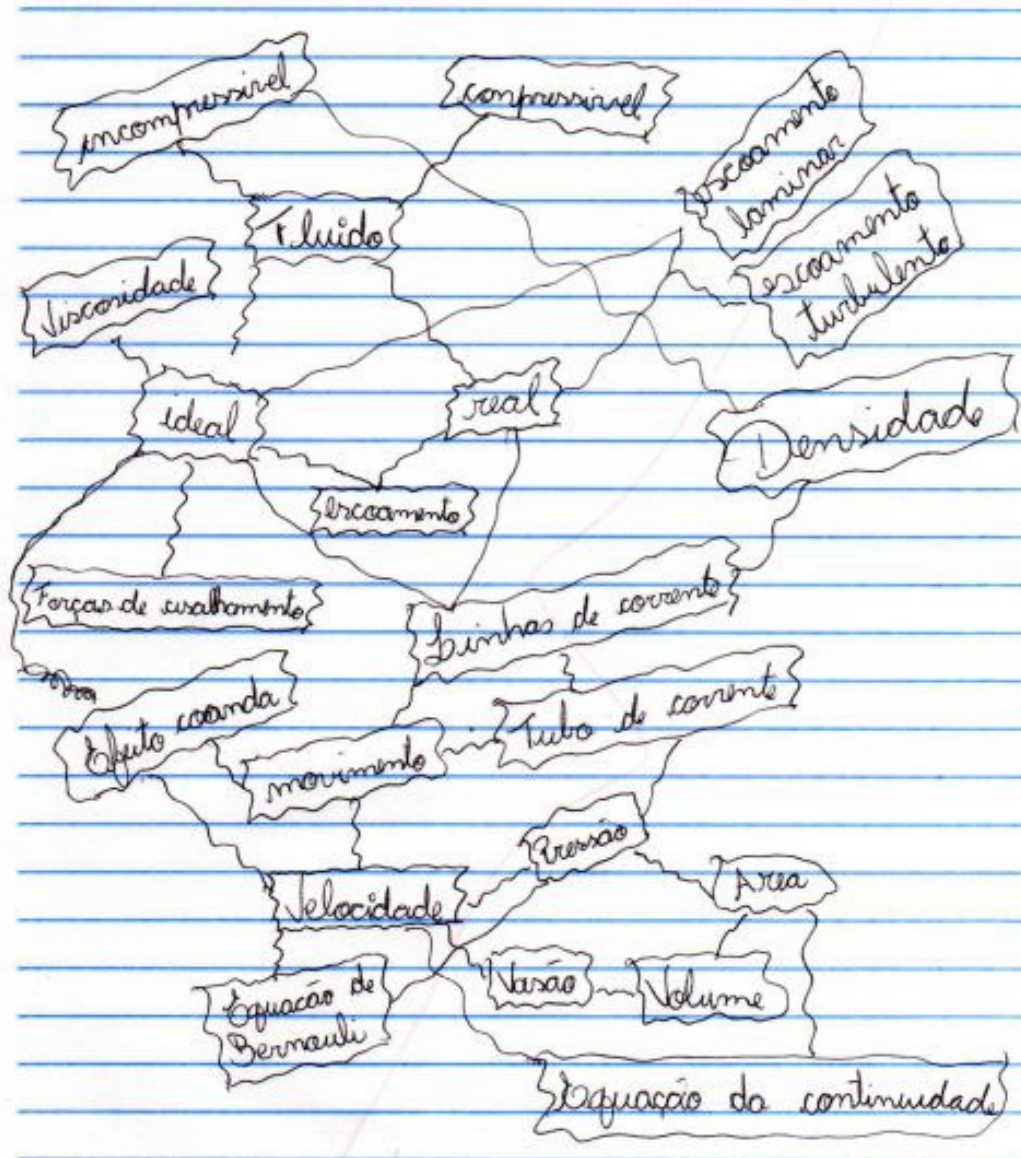 incompressivel
conpressivel
escoamento
laminar
Fluido
escoamento
turbulento
Viscosidade
ideal
real
Densidade
escoamento
Forças de cisalhamento
Linhas de corrente
Efeito coanda
Tubo de corrente
movimento
Pressão
Area
Velocidade
Vasão
Volume
Equação de
Bernouli
Equação da continuidade